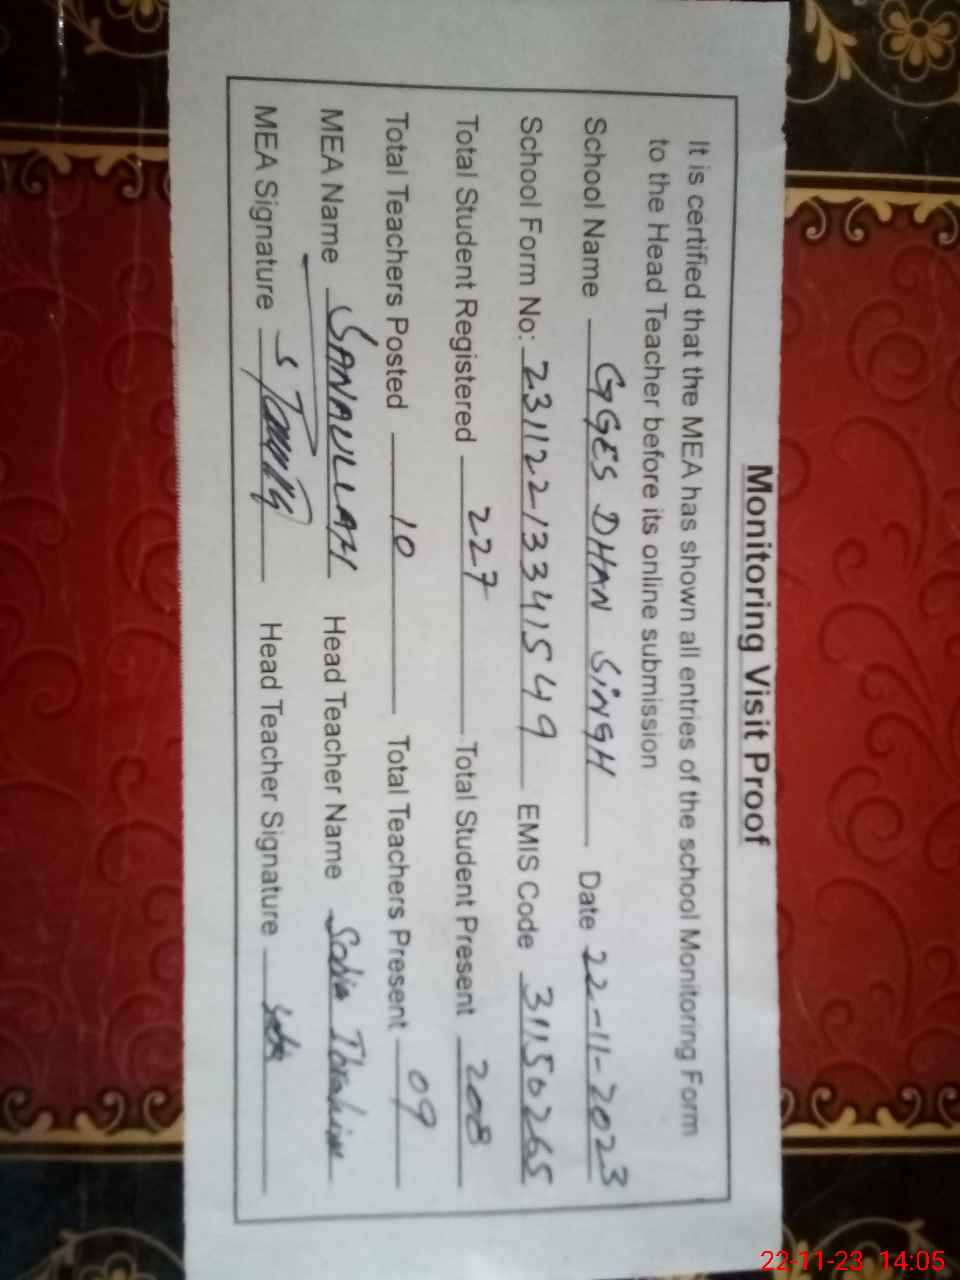 Monitoring Visit Proof
It is certified that the MEA has shown all entries of the school Monitoring Form
to the Head Teacher before its online submission
School Name GGES DHAN SINGH Date 22-11-2023
School Form No: 231122-13341549 EMIS Code 31150265
Total Student Registered 227 Total Student Present 208
Total Teachers Posted 10 Total Teachers Present 09
MEA Name SANAULLAH Head Teacher Name Sobia Ibrahim
MEA Signature Head Teacher Signature
22-11-23 14:05